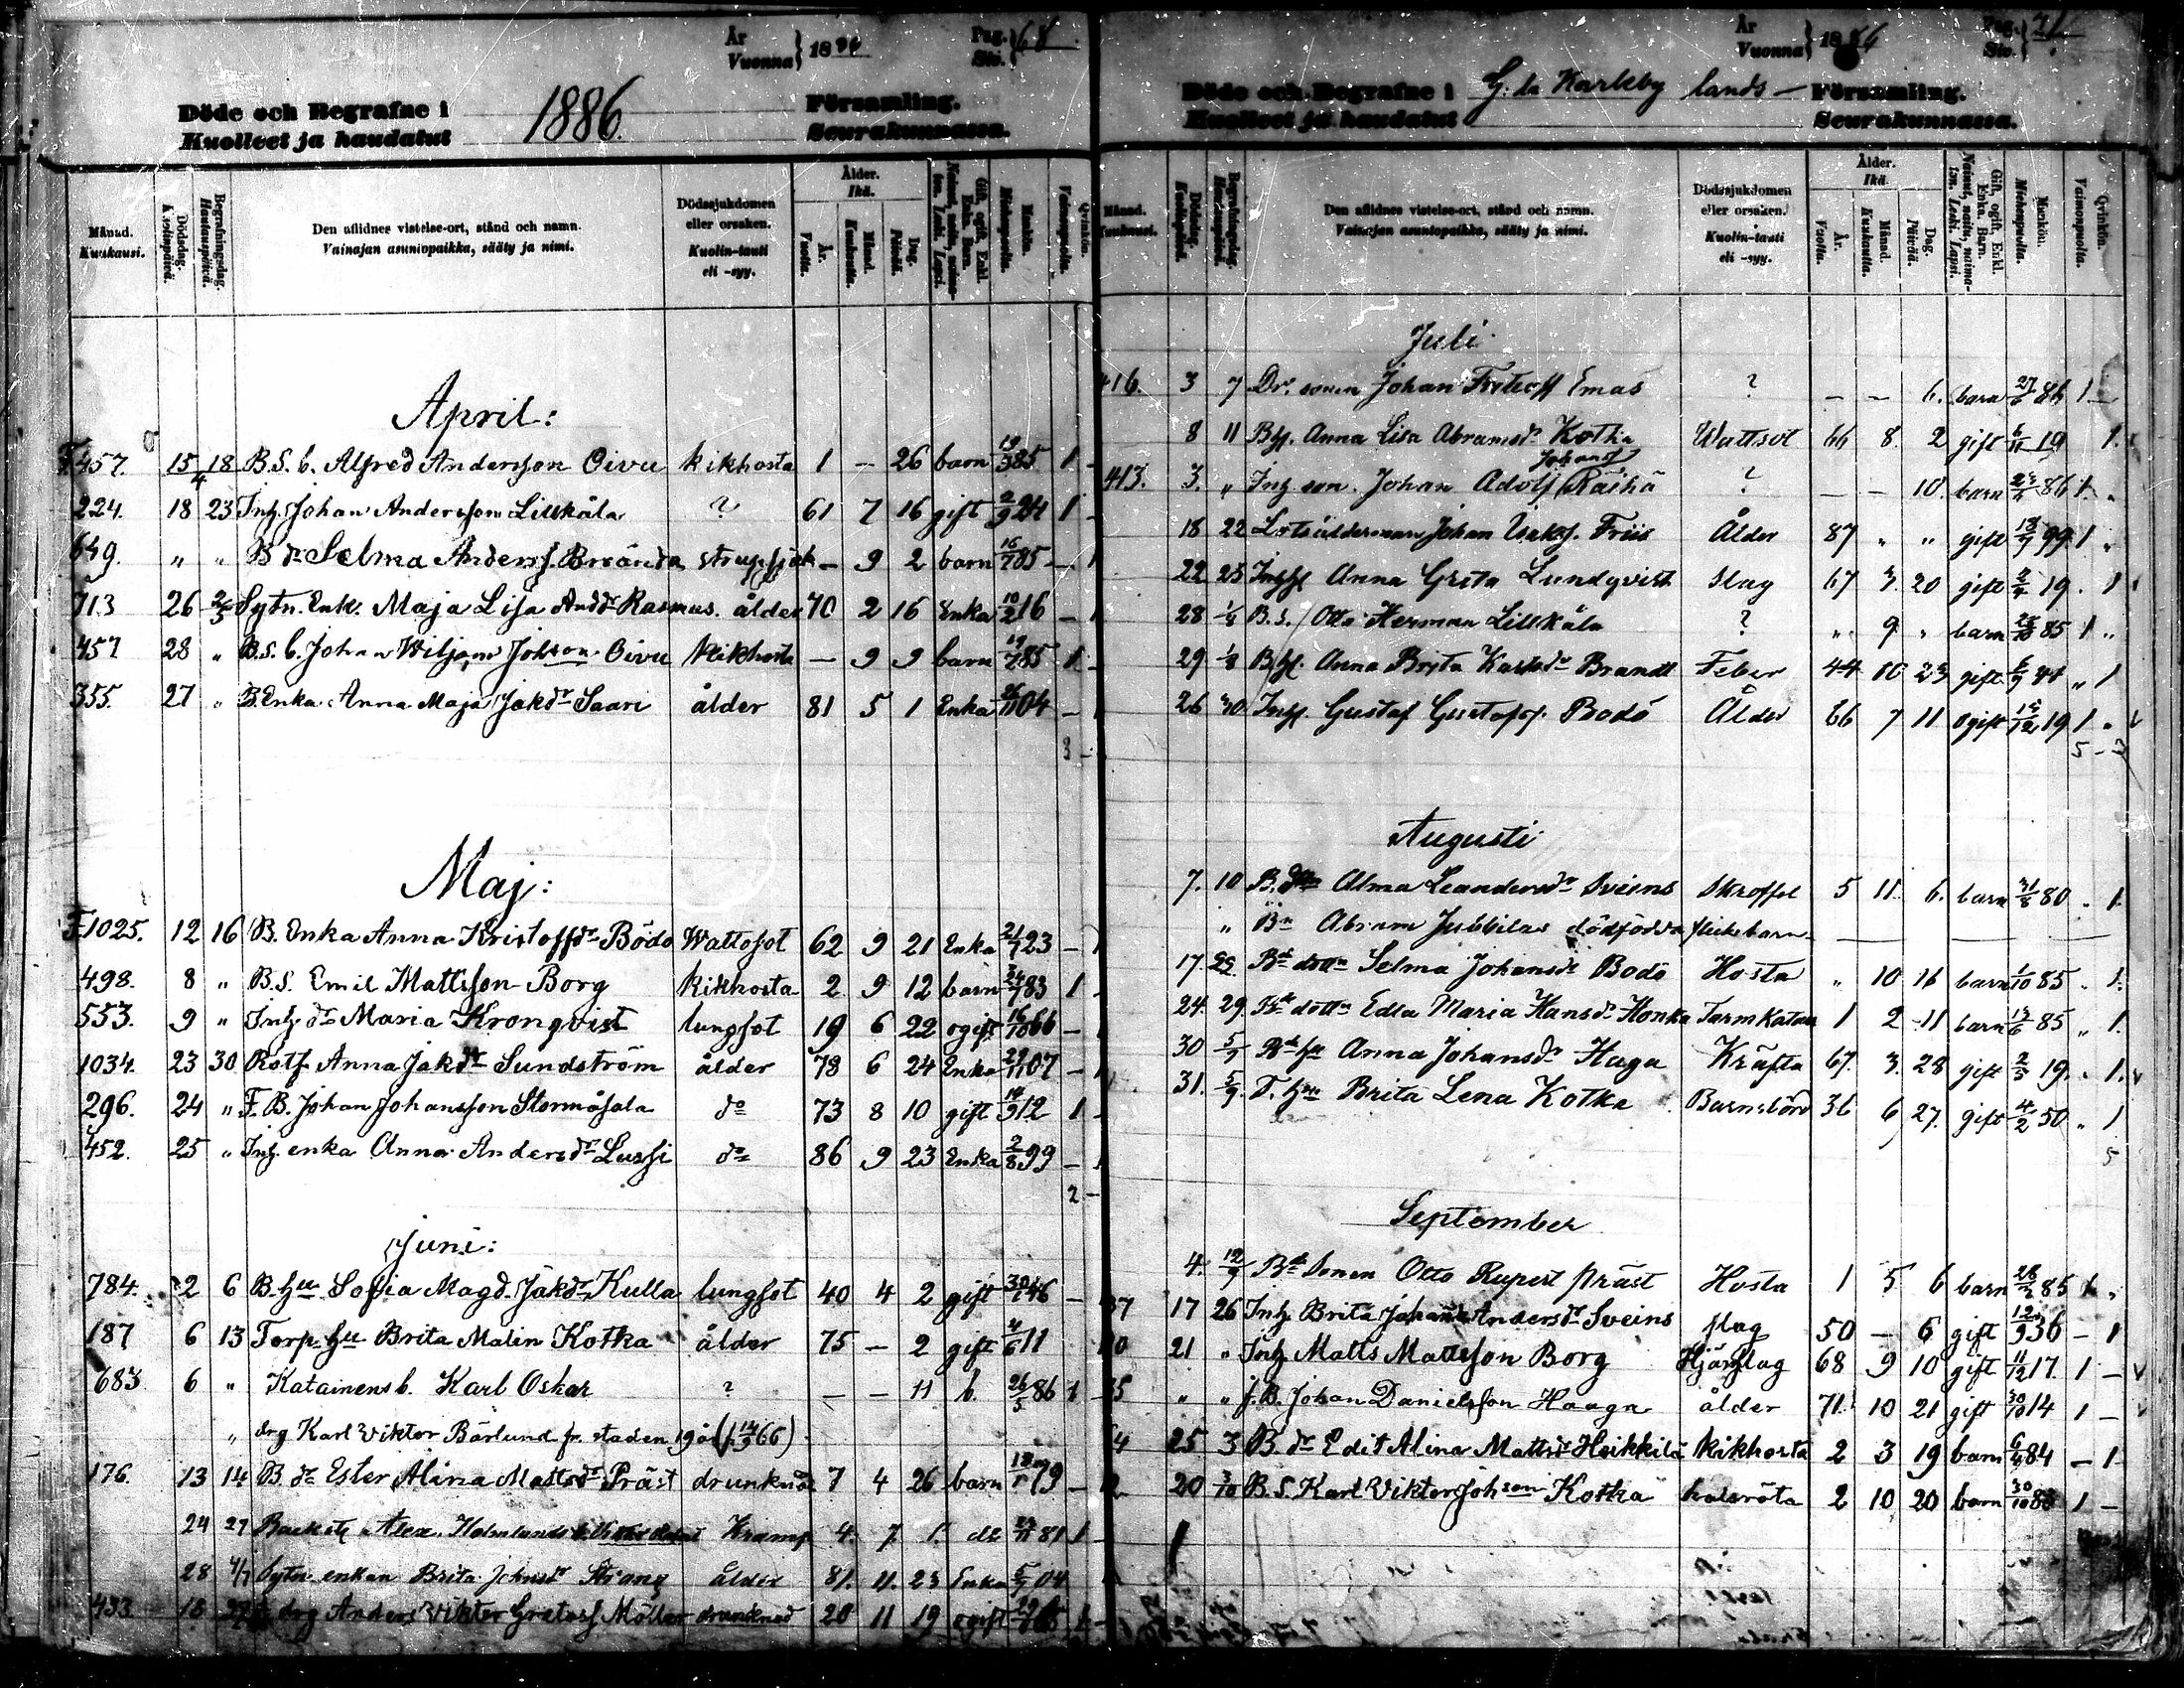 År
Vuonna } 1886
Pag.
Siv. } 68
Döde och Begrafne i
Kuolleet ja haudatut
1886.
Församling.
Seurakunnassa.
Månad. Kuukausi.
Dödsdag. Kuolinpäivä.
Begrafningsdag. Hautauspäivä.
Den aflidnes vistelse-ort, stånd och namn.
Vainajan asuniopaikka, sääty ja nimi.
Dödssjukdomen eller orsaken.
Kuolin-tauti eli -syy.
Ålder. Ikä.
År. Vuotta.
Månad. Kuukautta.
Dag. Päivää.
Gift, ogift, Enkl. Enka. Barn.
Mankön. Miehenpuolta.
Qvinkön. Vaimonpuolta.
April:
F. 457. 15/4 18 B.S. b. Alfred Andersson Oivu kikhosta 1 - 26 barn 19/3 85 1 -
224. 18 23 Inh. Johan Andersson Lillkåla ? 61 7 16 gift 2/9 24 1 -
649. " " B dr Selma Anders. Brända strupsjuk - 9 2 barn 16/7 85 - 1
713 26 2/5 Sytn. Enk. Maja Lisa Andd. Rasmus. ålder 70 2 16 Enka 10/2 16 - 1
457 28 " B.S. b. Johan Wiljam Johson Oivu Kikhosta - 9 9 barn 19/7 85 1 -
355. 27 " B. Enka Anna Maja Jakdr Saari ålder 81 5 1 Enka 26/11 04 - 1
3 -
Maj:
F. 1025. 12 16 B. Enka Anna Kristoffdr Bödö Wattosot 62 9 21 Enka 21/7 23 - 1
498. 8 " B.S. Emil Mattsson Borg Kikhosta 2 9 12 barn 83 1 -
553. 9 " Inh. dr Maria Kronqvist lungsot 19 6 22 ogift 16/10 66 - 1
1034. 23 30 Rotf. Anna Jakdr Sundström ålder 78 6 24 Enka 29/11 07 - 1
296. 24 " F.B. Johan Johansson Stormåsala do 73 8 10 gift 14/9 12 1 -
452. 25 " Inh. enka Anna Andersdr Lussi do 86 9 23 Enka 2/8 99 - 1
2 -
Juni:
784. 2 6 B. hu Sofia Magd. Jakdr Kulla lungsot 40 4 2 gift 30/1 46 -
187 6 13 Torp. hu Brita Malin Kotka ålder 75 - 2 gift 4/6 11
683. 6 " Katainens b. Karl Oskar ? - - 11 b. 26/5 86 1 -
" drg Karl Viktor Bärlund fr. staden 19 år (f. 14/9 66)
176. 13 14 B. dr Ester Alina Mattsdr Präst drunknad 7 4 26 barn 79 -
24 27 Alex. Holmlunds Kramp 4. 7 1. 81 1
28 4/7 Sytn. enkan Brita Johnsdr Strang ålder 81. 11. 23 Enka 5/7 04
433. 18 drg Anders Viktor Gretasf. Möller drunknad 20 11 19 ogift 65 1 -
År
Vuonna } 1886
Pag.
Siv. }
Döde och Begrafne i
Kuolleet ja haudatut
G. la Karleby lands -
Församling.
Seurakunnassa.
Månad. Kuukausi.
Dödsdag. Kuolinpäivä.
Begrafningsdag. Hautauspäivä.
Den aflidnes vistelse-ort, stånd och namn.
Vainajan asuntopaikka, sääty ja nimi.
Dödssjukdomen eller orsaken.
Kuolin-tauti eli -syy.
Ålder. Ikä.
År. Vuotta.
Månad. Kuukautta.
Dag. Päivää.
Gift, ogift, Enkl. Enka. Barn.
Mankön. Miehenpuolta.
Qvinkön. Vaimonpuolta.
Juli
416. 3 7 Dr. sonen Johan Fritioff Emas ? - - 6. barn 27/6 86 1 -
8 11 Bhf. Anna Lisa Abramsdr Kotka Wattsot 66 8. 2 gift 6/11 19 1.
413. 3. " Inh. son. Johan Adolf Johansf Räihä ? - - 10. barn 86 1 "
18 22 Lotsålderman Johan Isaksf. Friis Ålder 87 " " gift 18/7 99 1 "
22 25 Inhf. Anna Greta Lundqvist slag 67 3. 20 gift 2/4 19. 1
28 B.S. Otto Herman Lillkåla ? " 9 " barn 28/10 85 1 "
29 1/8 Bhf. Anna Brita Karlsdr Brandt Feber 44 10 23 gift 6/9 41 " 1
26 30 Inhf. Gustaf Gustafsf. Bodö Ålder 66 7 11 ogift 15/12 19 1 "
5 - 3
Augusti
7. 10 B. Alma Leandersdr Sveins Skroffel 5 11. 6. barn 31/8 80 . 1.
" Bn Abram Jubbilas dödfödda flickebarn
17. 22. Bd dottn Selma Johansdr Bodö Hosta " 10 16 barn 1/10 85 . 1.
24. 29. Bd dottn Edla Maria Hansdr Honka Tarmkatarr 1 2 11 barn 13/6 85 " 1.
30 5/9 Bd hu Anna Johansdr Haga Kräfta 67. 3. 28 gift 2/5 19. . 1.
31. 5/9. T. hu Brita Lena Kotka Barnsbörd 36 6 27. gift 4/2 50 " 1
5
September
4. 12/9 Bd Sonen Otto Rupert Präst Hosta 1 5 6 barn 85 1 "
37 17 26 Inh Brita Johanna Andersdr Sveins slag 50 - 5 gift 12/9 36 - 1
21 " Inh Matts Mattsson Borg Hjärnslag 68 9 10 gift 11/12 17. 1 -
" " f.B. Johan Danielsson Haaga ålder 71. 10 21 gift 30/10 14 1 -
25 3 B. dr Edit Alina Mattsdr Heikkilä kikhosta 2 3 19 barn 6/6 84 - 1
20 3/10 B.S. Karl Viktor Johson Kotka halsröta 2 10 20 barn 30/10 83 1 -